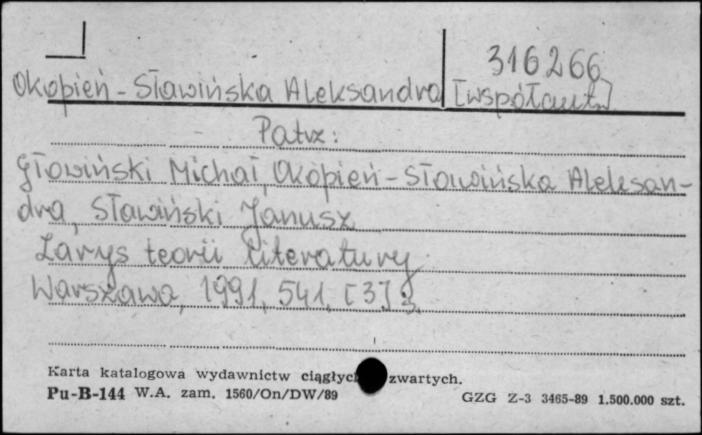 316266
Okopień-Sławińska Aleksandra [współaut.]
Patrz:
Głowiński Michał, Okopień-Sławińska Aleksan-
dra, Sławiński Janusz
Zarys teorii literatury
Warszawa, 1991, 541, [3] s.
Karta katalogowa wydawnictw ciągłyc zwartych.
Pu-B-144 W.A. zam. 1560/On/DW/89 GZG Z-3 3465-89 1.500.000 szt.